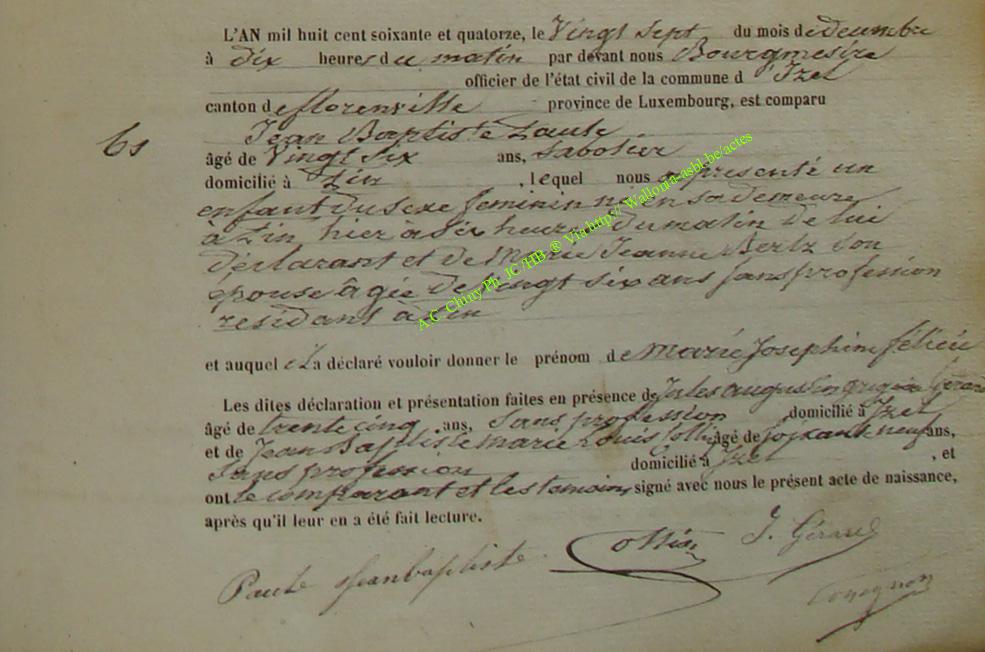 L'AN mil huit cent soixante et quatorze, le Vingt sept du mois de decembre
à dix heures du matin par devant nous Bourgmestre
officier de l'état civil de la commune d'Izel
canton de florenville province de Luxembourg, est comparu
Jean Baptiste Paute
6s
âgé de Vingt six ans, Sabotier
domicilié à Pin, lequel nous a presenté un
enfant du sexe feminin né en sa demeure
à Pin hier à six heures du matin de lui
déclarant et de Marie Jeanne Bertz son
epouse âgée de vingt six ans sans profession
residant à Pin
et auquel il a déclaré vouloir donner le prénom de Marie Josephine félicie
Les dites déclaration et présentation faites en présence de Jules augustin Gérard
âgé de trente cinq ans, Sans profession domicilié à Izel
et de Jean Baptiste marie Louis Collin âgé de soixante neuf ans,
Sans profession domicilié à Izel, et
ont le comparant et les temoins, signé avec nous le présent acte de naissance,
après qu'il leur en a été fait lecture.
Paute Jeanbaptiste Collin J. Gérard
A.C Chiny Ph. JC /HB ® Via http:// Wallonia-asbl.be/actes